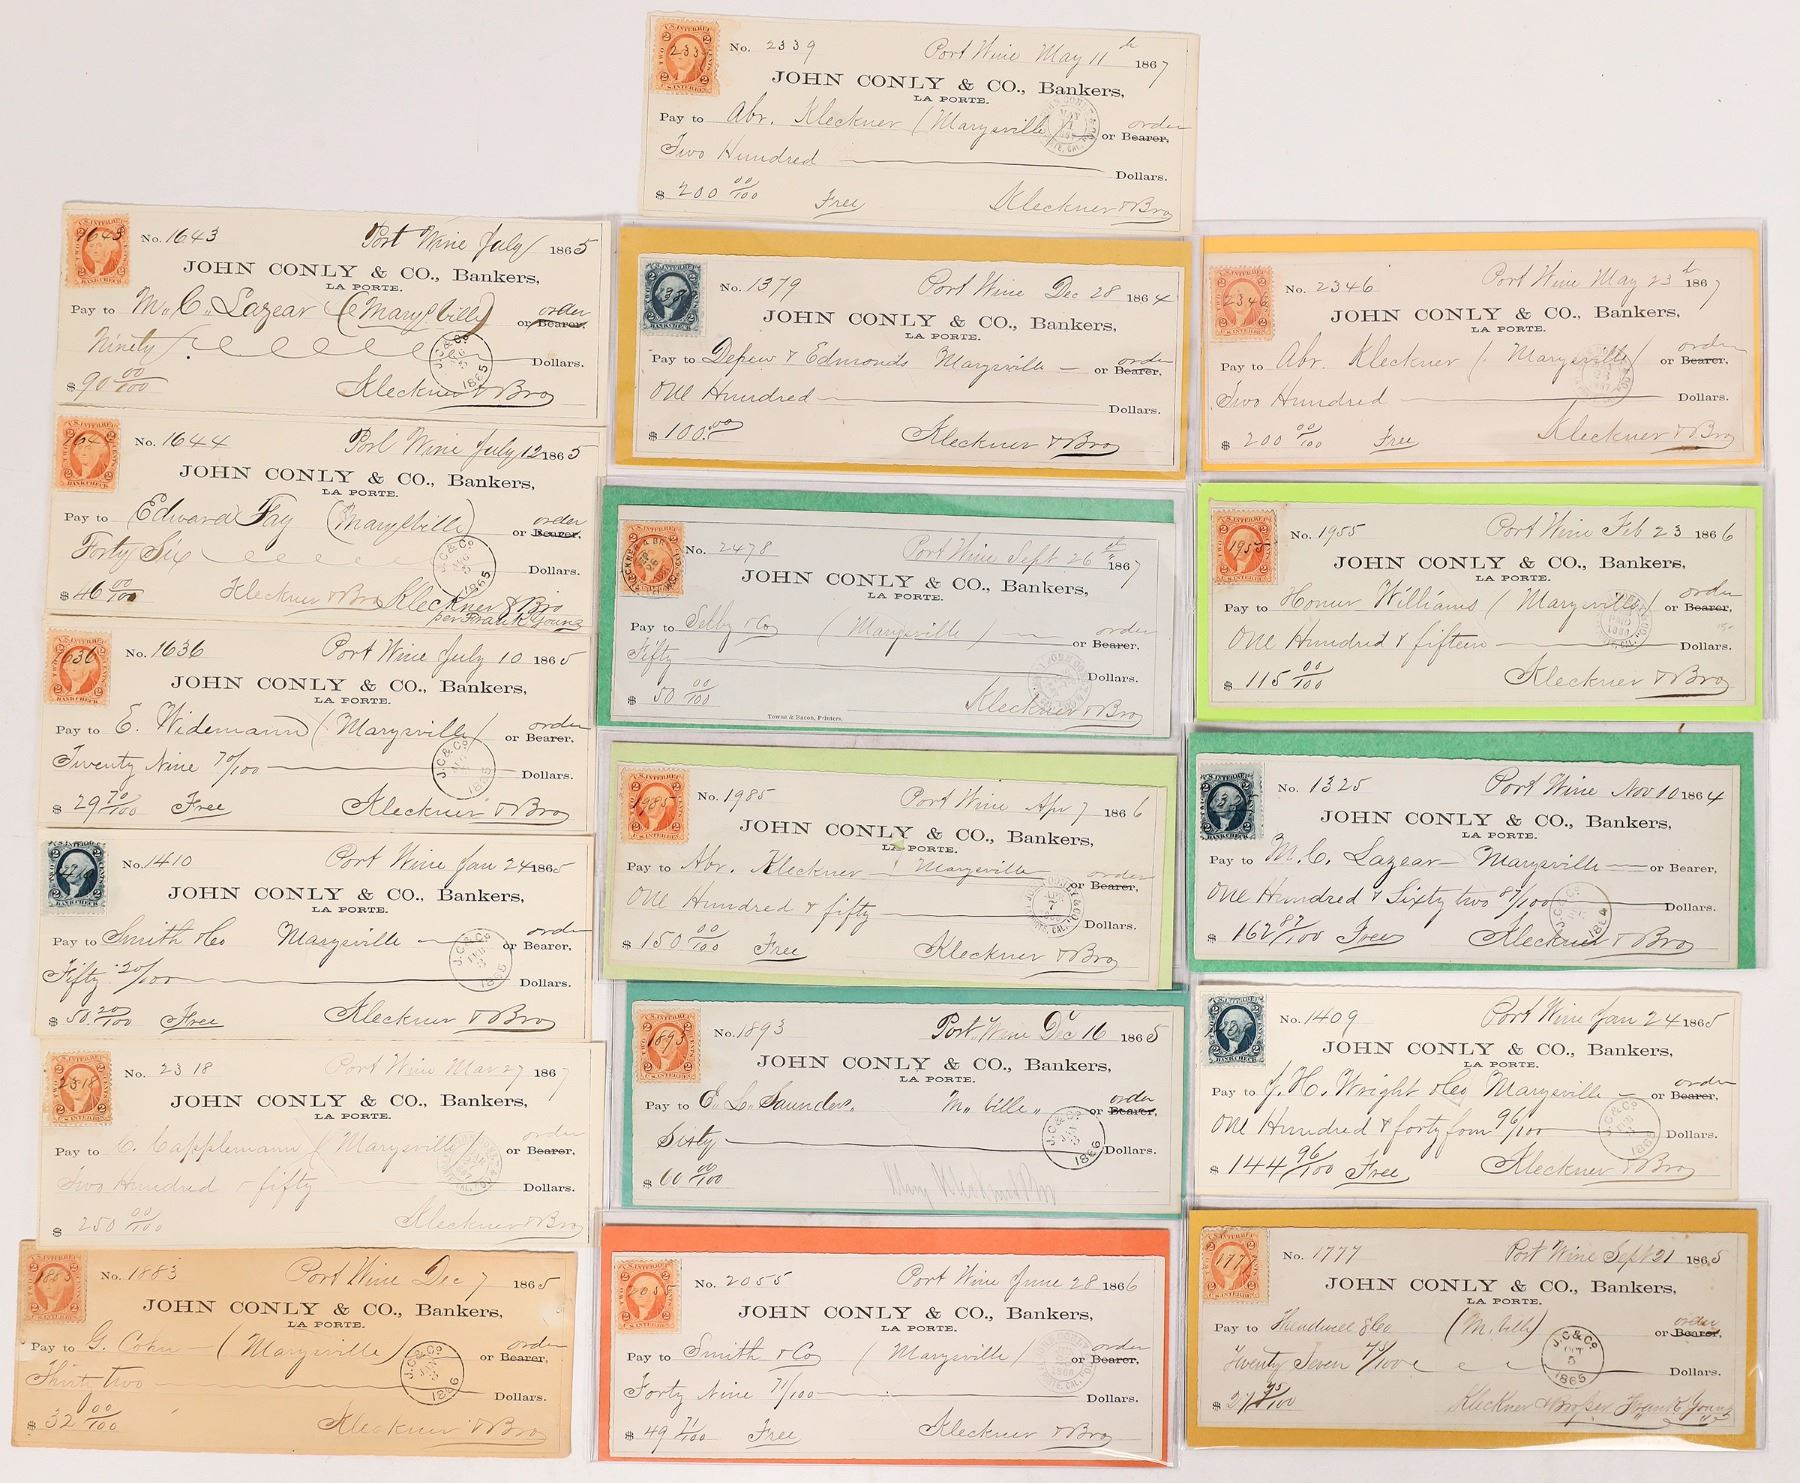 2339
No. 2339 Port Wine May 11th 1867
JOHN CONLY & CO., Bankers,
LA PORTE.
Pay to Abr. Kleckner (Marysville) or Bearer, order
Two Hundred Dollars.
$ 200 00/100 Free Kleckner & Bro
1643
No. 1643 Port Wine July 1865
JOHN CONLY & CO., Bankers,
LA PORTE.
Pay to M. C. Lazear (Marysville) or Bearer, order
Ninety Dollars.
$ 90 00/100 Kleckner & Bro
J.C. & Co 1865
164
No. 1644 Port Wine July 12 1865
JOHN CONLY & CO., Bankers,
LA PORTE.
Pay to Edward Fay (Marysville) or Bearer, order
Forty Six Dollars.
$ 46 00/100 Kleckner & Bro Kleckner & Bro
per Frank Young
J.C. & Co 1865
1636
No. 1636 Port Wine July 10 1865
JOHN CONLY & CO., Bankers,
LA PORTE.
Pay to E. Widemann (Marysville) or Bearer, order
Twenty Nine 70/100 Dollars.
$ 29 70/100 Free Kleckner & Bro
J.C. & Co 1865
No. 1410 Port Wine Jan 24 1865
JOHN CONLY & CO., Bankers,
LA PORTE.
Pay to Smith & Co Marysville or Bearer, order
Fifty 20/100 Dollars.
$ 50.20/100 Free Kleckner & Bro
J.C. & Co 1865
2318
No. 2318 Port Wine Mar 27 1867
JOHN CONLY & CO., Bankers,
LA PORTE.
Pay to C. Capplemann (Marysville) or Bearer, order
Two Hundred & fifty Dollars.
$ 250 00/100 Kleckner & Bro
1883
No. 1883 Port Wine Dec 7 1865
JOHN CONLY & CO., Bankers,
LA PORTE.
Pay to G. Cohn (Marysville) or Bearer, order
Thirty two Dollars.
$ 32 00/100 Kleckner & Bro
J.C. & Co 1866
No. 1379 Port Wine Dec 28 1864
JOHN CONLY & CO., Bankers,
LA PORTE.
Pay to Depew & Edmonds Marysville or Bearer, order
One Hundred Dollars.
$ 100.00 Kleckner & Bro
No. 2478 Port Wine Sept 26th 1867
JOHN CONLY & CO., Bankers,
LA PORTE.
Pay to Selby & Co (Marysville) or Bearer, order
Fifty Dollars.
$ 50 00/100 Kleckner & Bro
Towne & Bacon, Printers.
1985
No. 1985 Port Wine Apr 7 1866
JOHN CONLY & CO., Bankers,
LA PORTE.
Pay to Abr. Kleckner Marysville or Bearer, order
One Hundred & fifty Dollars.
$ 150 00/100 Free Kleckner & Bro
1893
No. 1893 Port Wine Dec 16 1865
JOHN CONLY & CO., Bankers,
LA PORTE.
Pay to E. L. Saunders. M" ville" or Bearer, order
Sixty Dollars.
$ 60 00/100
J.C. & Co 1866
205
No. 2055 Port Wine June 28 1866
JOHN CONLY & CO., Bankers,
LA PORTE.
Pay to Smith & Co (Marysville) or Bearer, order
Forty Nine 71/100 Dollars.
$ 49 71/100 Free Kleckner & Bro
2346
No. 2346 Port Wine May 23d 1867
JOHN CONLY & CO., Bankers,
LA PORTE.
Pay to Abr. Kleckner (Marysville) or Bearer, order
Two Hundred Dollars.
$ 200 00/100 Free Kleckner & Bro
1955
No. 1955 Port Wine Feb 23 1866
JOHN CONLY & CO., Bankers,
LA PORTE.
Pay to Homer Williams (Marysville) or Bearer, order
One Hundred & fifteen Dollars.
$ 115 00/100 Kleckner & Bro
No. 1325 Port Wine Nov 10 1864
JOHN CONLY & CO., Bankers,
LA PORTE.
Pay to M. C. Lazear Marysville or Bearer,
One Hundred & Sixty two 87/100 Dollars.
$ 162 87/100 Free Kleckner & Bro
J.C. & Co 1864
No. 1409 Port Wine Jan 24 1865
JOHN CONLY & CO., Bankers,
LA PORTE.
Pay to J. H. Wright & Co Marysville or Bearer, order
One Hundred & forty four 96/100 Dollars.
$ 144 96/100 Free Kleckner & Bro
J.C. & Co 1865
1777
No. 1777 Port Wine Sept 21 1865
JOHN CONLY & CO., Bankers,
LA PORTE.
Pay to & Co (M. ville) or Bearer, order
Twenty Seven 75/100 Dollars.
$ 27 75/100 Kleckner & Bro per Frank Young
J.C. & Co OCT 5 1865